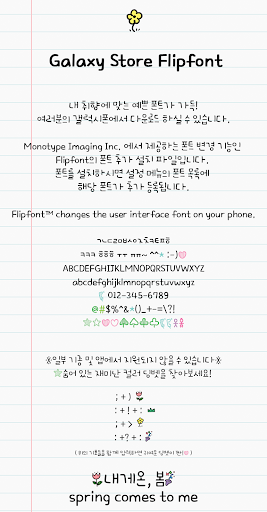 Galaxy Store Flipfont
내 취향에 맞는 예쁜 폰트가 가득!
여러분의 갤럭시폰에서 다운로드 하실 수 있습니다.
Monotype Imaging Inc. 에서 제공하는 폰트 변경 기능인
Flipfont의 폰트 추가 설치 파일입니다.
폰트를 설치하시면 설정 메뉴의 폰트 목록에
해당 폰트가 추가 등록됩니다.
Flipfont™ changes the user interface font on your phone.
ㄱㄴㄷㄹㅁㅂㅅㅇㅈㅊㅋㅌㅍㅎ
ㅋㅋㅋ ㅎㅎㅎ ㅜㅜ ㅠㅠ~ ^^* :-)🩷
ABCDEFGHIJKLMNOPQRSTUVWXYZ
abcdefghijklmnopqrstuvwxyz
012-345-6789
@#$%^&*()_+-=\?!
☆☆♡♡
※일부 기종 및 앱에서 지원되지 않을 수 있습니다※
☆숨어 있는 재미난 컬러 딩벳을 찾아보세요!
; + )
: + ! + :
; + >
: +? + :
내게온, 봄
spring comes to me